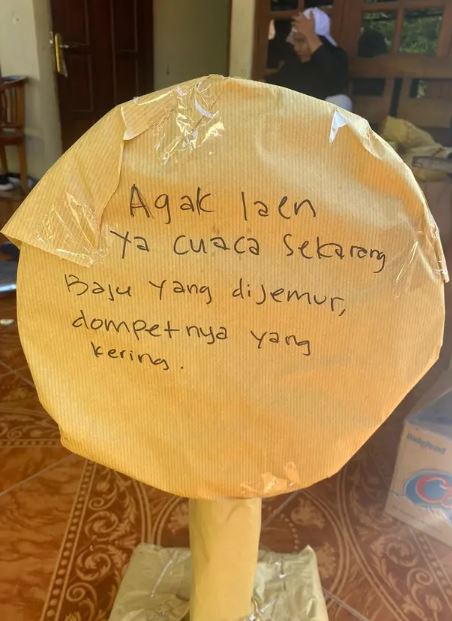 Agak laen
Ya cuaca sekarang
Baju yang dijemur,
dompetnya yang
kering.